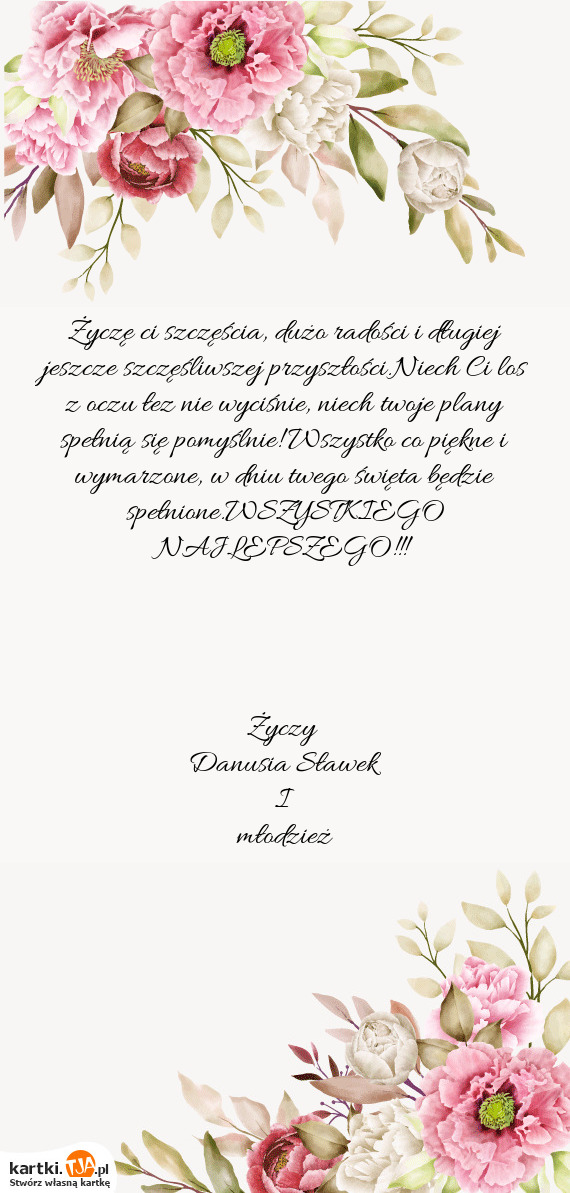 Życzę ci szczęścia, dużo radości i długiej
jeszcze szczęśliwszej przyszłości.Niech Ci los
z oczu łez nie wyciśnie, niech twoje plany
spełnią się pomyślnie!Wszystko co piękne i
wymarzone, w dniu twego święta będzie
spełnione.WSZYSTKIEGO
NAJLEPSZEGO!!!
Życzy
Danusia Sławek
I
młodzież
kartki.TJA.pl
Stwórz własną kartkę